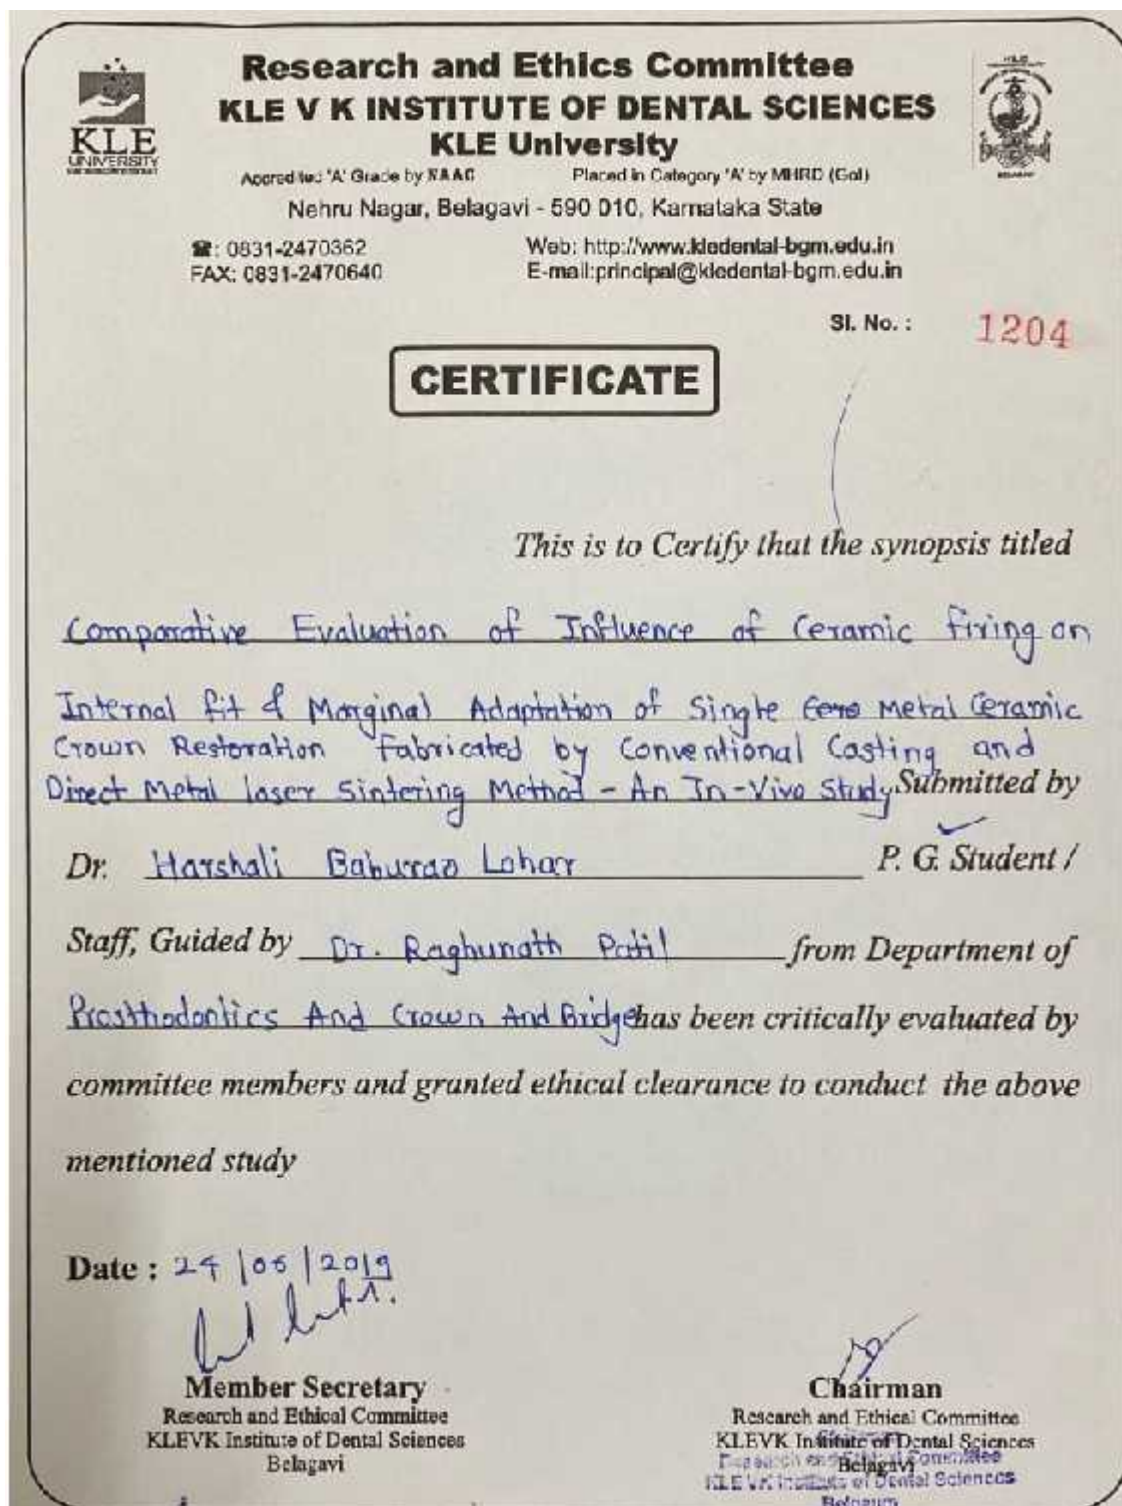 Research and Ethics Committee
KLE V K INSTITUTE OF DENTAL SCIENCES
KLE University
KLE
UNIVERSITY
Accredited 'A' Grade by NAAC Placed in Category 'A' by MHRD (GoI)
Nehru Nagar, Belagavi - 590 010, Karnataka State
☎: 0831-2470362 Web: http://www.kledental-bgm.edu.in
FAX: 0831-2470640 E-mail:principal@kledental-bgm.edu.in
Sl. No. : 1204
CERTIFICATE
This is to Certify that the synopsis titled
Comparative Evaluation of Influence of Ceramic firing on
Internal fit & Marginal Adaptation of Single Metal Ceramic
Crown Restoration Fabricated by Conventional Casting and
Direct Metal laser Sintering Method - An In-Vivo Study Submitted by
Dr. Harshali Baburao Lohar P. G. Student /
Staff, Guided by Dr. Raghunath Patil from Department of
Prosthodontics And Crown And Bridge has been critically evaluated by
committee members and granted ethical clearance to conduct the above
mentioned study
Date : 24/06/2019
Member Secretary Chairman
Research and Ethical Committee Research and Ethical Committee
KLEVK Institute of Dental Sciences KLEVK Institute of Dental Sciences
Belagavi Belagavi
Research and Ethical Committee
KLE VK Institute of Dental Sciences
Belgaum